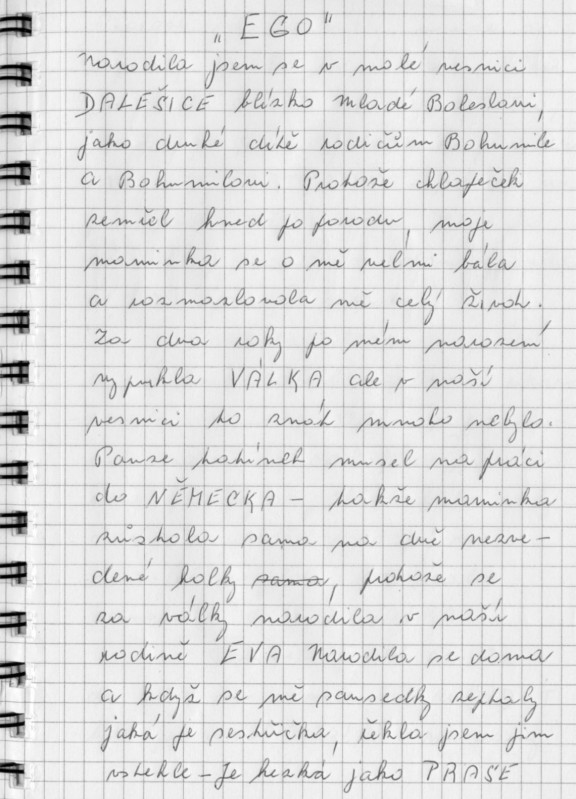 „EGO"
Narodila jsem se v malé vesnici
DALEŠICE blízko Mladé Boleslavi,
jako druhé dítě rodičům Bohumile
a Bohumilovi. Protože chlapeček
zemřel hned po porodu, moje
maminka se o mě velmi bála
a rozmazlovala mě celý život.
Za dva roky po mém narození
vypukla VÁLKA ale v naší
vesnici to znát mnoho nebylo.
Pouze tatínek musel na práci
do NĚMECKA – takže maminka
zůstala sama na dvě nezve-
dené holky sama, protože se
za války narodila v naší
rodině EVA Narodila se doma
a když se mě sousedky zeptaly
jaká je sestřička, řekla jsem jim
vztekle – Je hezká jako PRASE